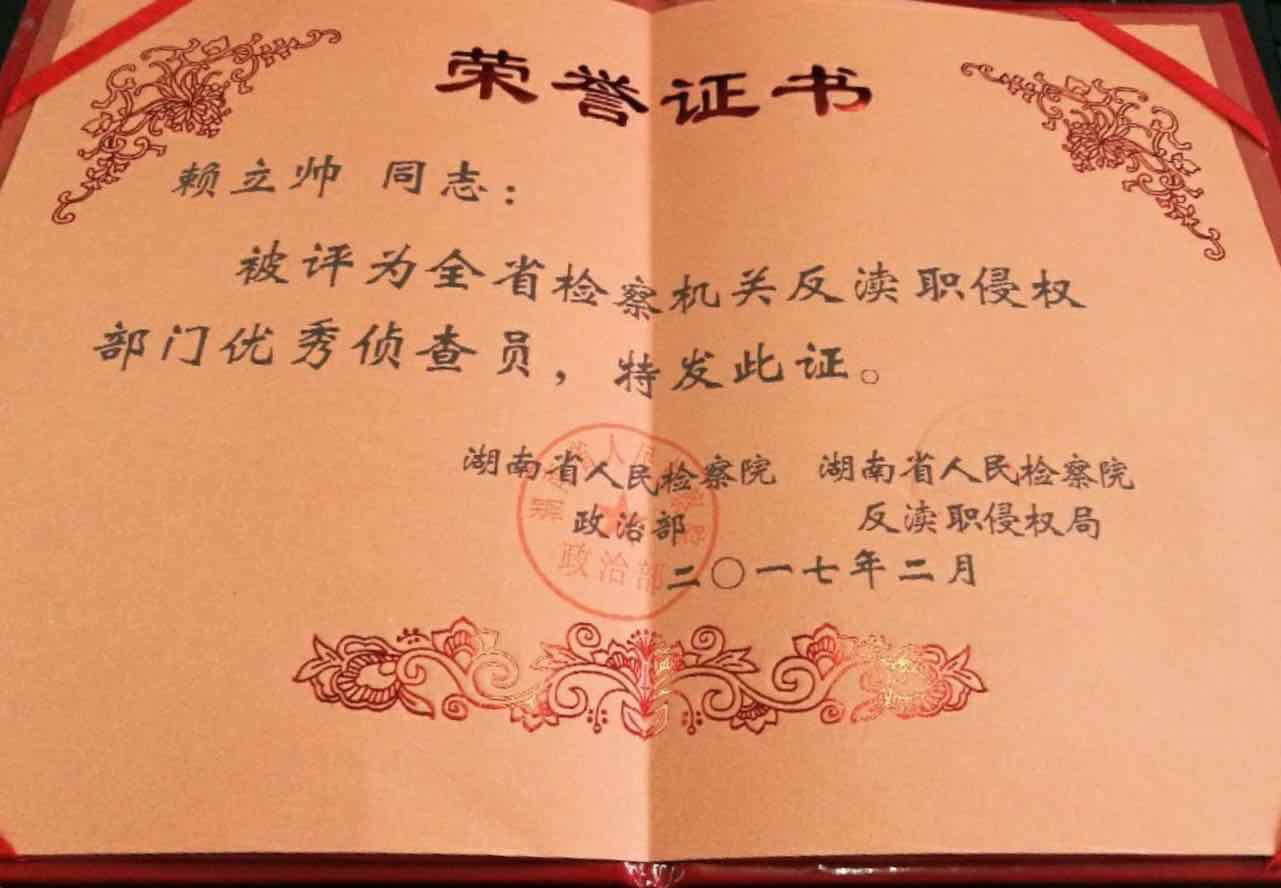 荣誉证书
赖立帅 同志：
被评为全省检察机关反渎职侵权
部门优秀侦查员，特发此证。
湖南省人民检察院 湖南省人民检察院
政治部 反渎职侵权局
政治部
二〇一七年二月